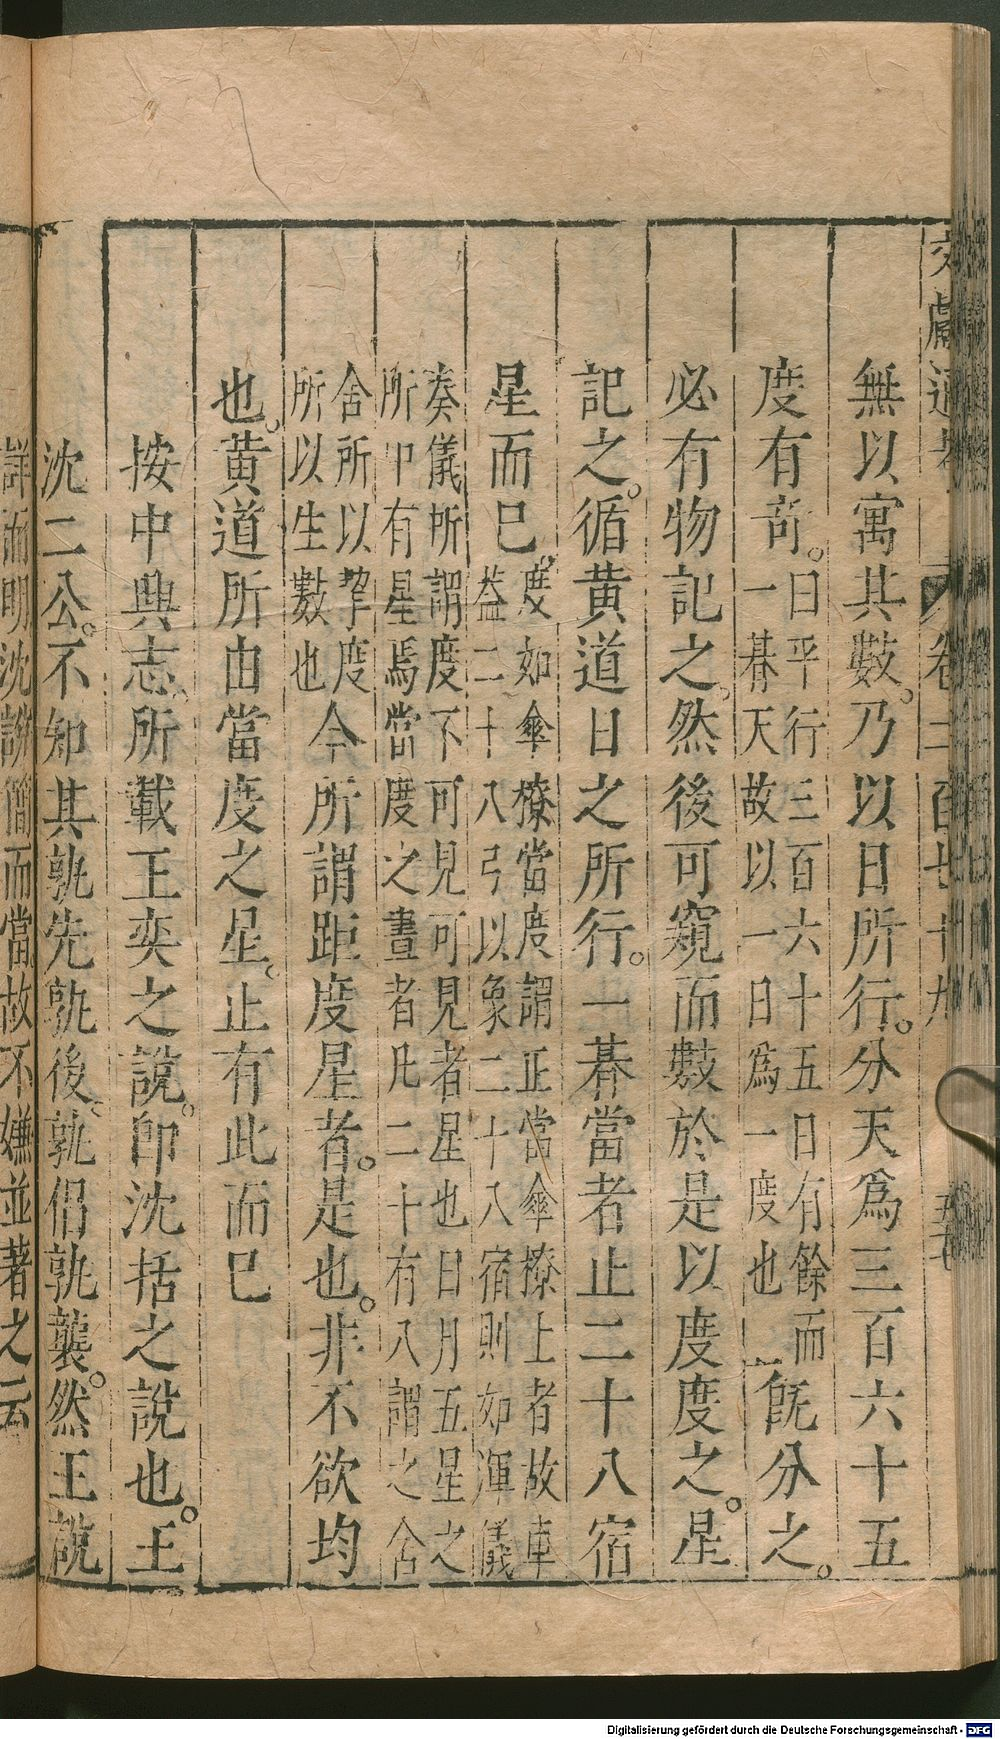 文獻通考 卷二百七十九
無以寓其數。乃以日所行。分天爲三百六十五
度有奇。日平行三百六十五日有餘而一朞天故以一日爲一度也既分之。
必有物記之。然後可窺而數於是以度度之。星
記之。循黃道日之所行。一朞當者止二十八宿
星而巳。度如傘橑當度謂正當傘橑上者故車葢二十八弓以象二十八宿則如渾儀
奏儀所謂度不可見可見者星也日月五星之所由有星焉當度之畫者凡二十有八謂之舍
舍所以挈度所以生數也今所謂距度星者。是也。非不欲均
也。黃道所由當度之星。止有此而巳
按中興志。所載王奕之說。即沈括之說也。王
沈二公。不知其孰先孰後。孰侣孰襲。然王說
詳而明沈說簡而當故不嫌並著之云
Digitalisierung gefördert durch die Deutsche Forschungsgemeinschaft - DFG